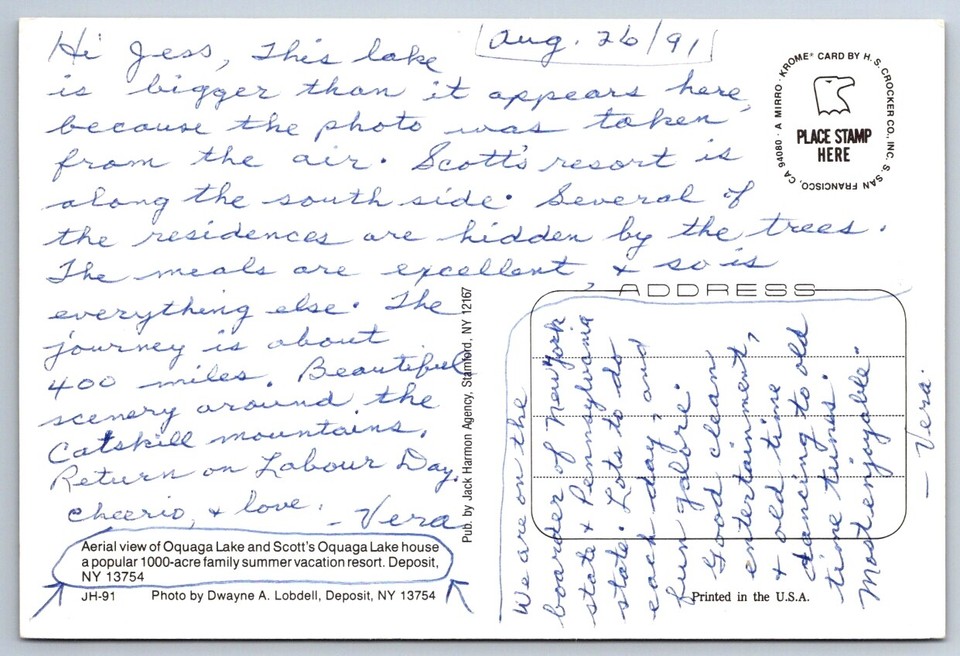 Aug. 26/91
Hi Jess, This lake
is bigger than it appears here,
because the photo was taken
from the air. Scott's resort is
along the south side. Several of
the residences are hidden by the trees.
The meals are excellent & so is
everything else. The
journey is about
400 miles. Beautiful
scenery around the
Catskill mountains.
Return on Labour Day.
Cheerio, & love. - Vera
Aerial view of Oquaga Lake and Scott's Oquaga Lake house
a popular 1000-acre family summer vacation resort. Deposit,
NY 13754
JH-91 Photo by Dwayne A. Lobdell, Deposit, NY 13754
Pub. by Jack Harmon Agency, Stamford, NY 12167
A MIRRO-KROME® CARD BY H. S. CROCKER CO., INC. S. SAN FRANCISCO, CA 94080
PLACE STAMP
HERE
ADDRESS
We are on the
boarder of New York
state & Pennsylvania
state. Lots to do
each day, and
fun galore.
Good clean
entertainment,
& old time
dancing to old
time tunes.
Most enjoyable.
- Vera.
Printed in the U.S.A.